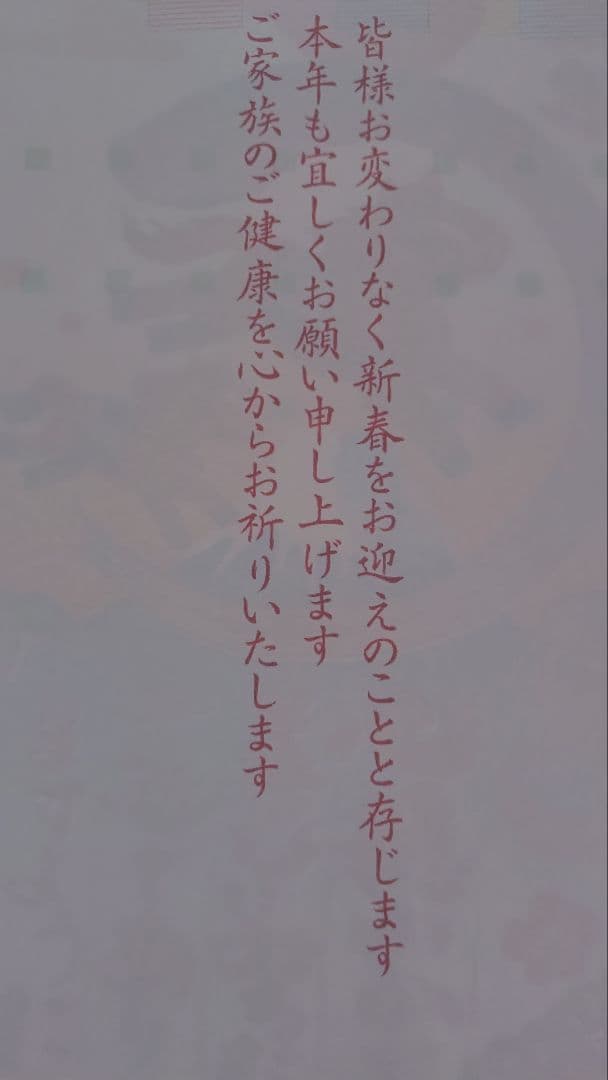 皆様お変わりなく新春をお迎えのことと存じます
本年も宜しくお願い申し上げます
ご家族のご健康を心からお祈りいたします